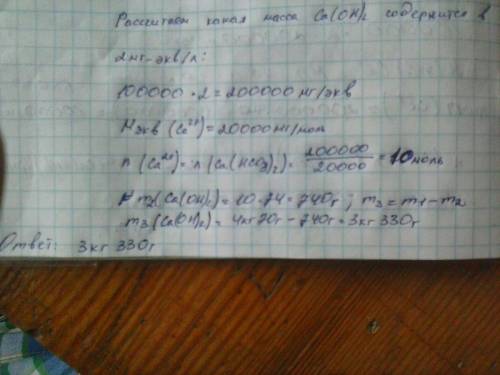 Рассчитаем какая масса Ca(OH)₂ содержится в
2мг-экв/л:
100000 · 2 = 200000 мг/экв
Mэкв (Ca²⁺) = 20000 мг/моль
n (Ca²⁺) = n (Ca(HCO₃)₂) = 200000/20000 = 10 моль
m₂(Ca(OH)₂) = 10 · 74 = 740г ; m₃ = m₁ - m₂
m₃ (Ca(OH)₂) = 4кг 70г - 740г = 3кг 330г
Ответ: 3кг 330г